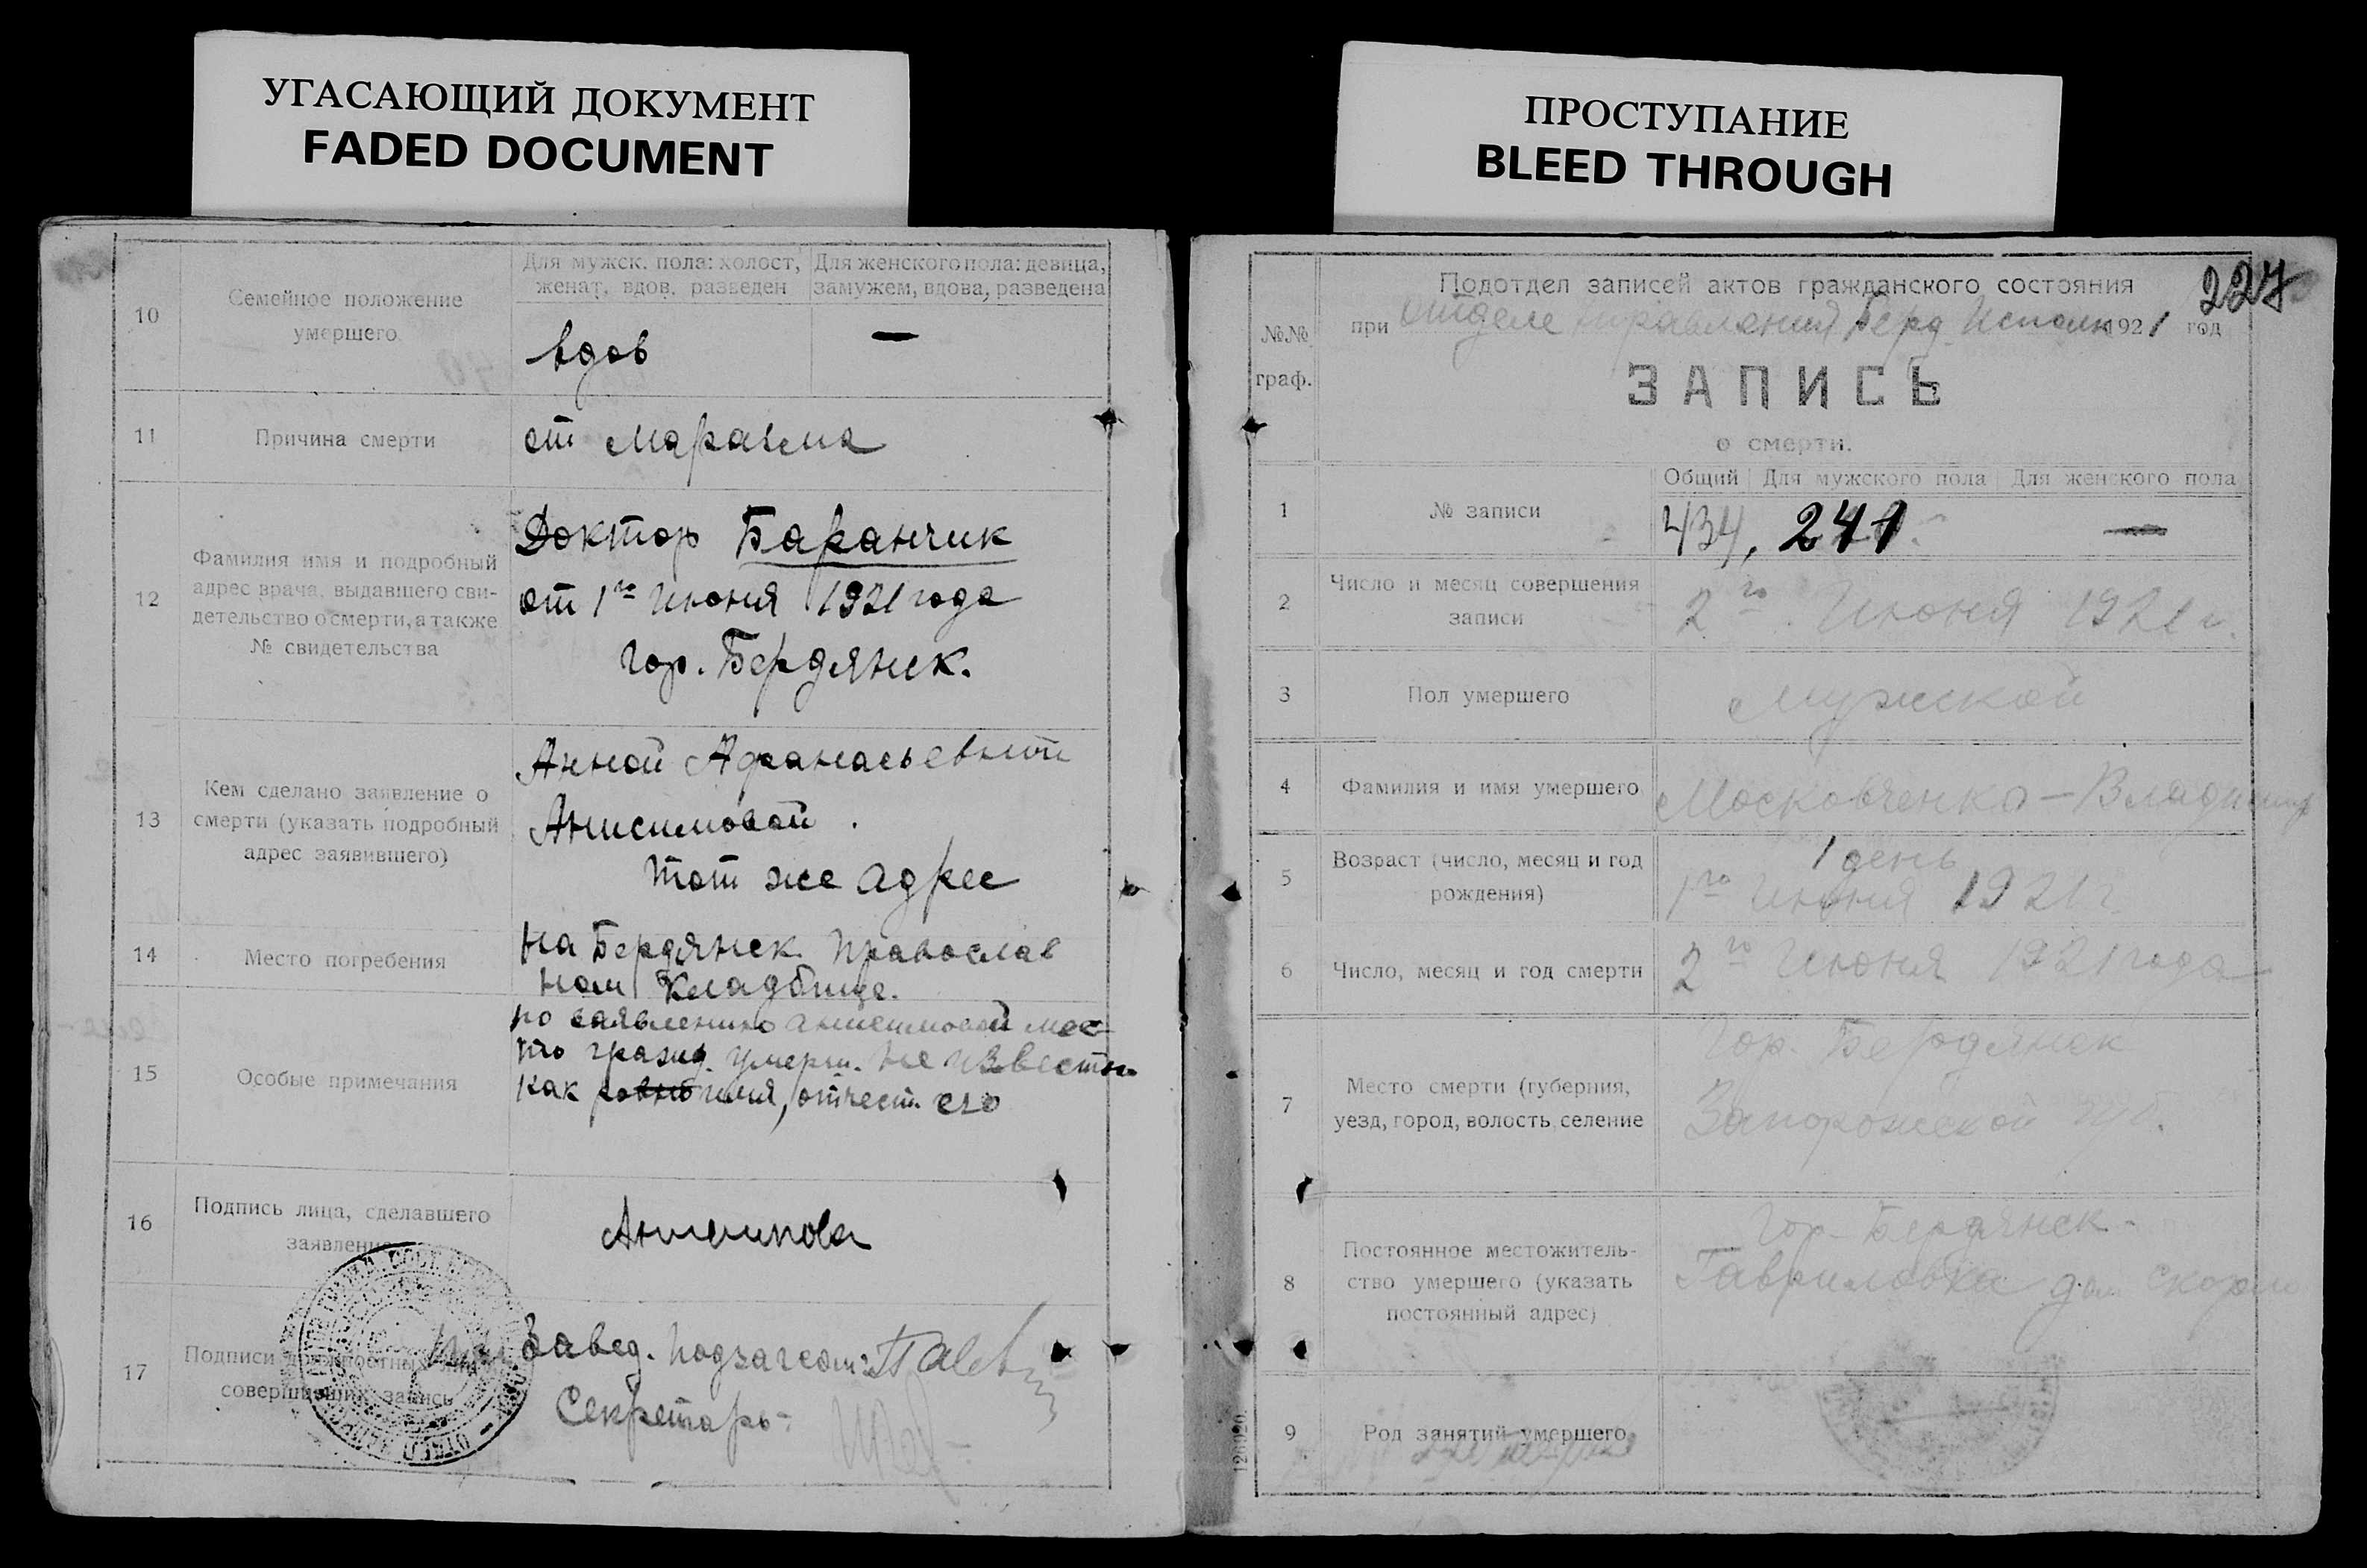 УГАСАЮЩИЙ ДОКУМЕНТ
FADED DOCUMENT
10
Семейное положение
умершего
Для мужск. пола: холост,
женат, вдов, разведен
Для женского пола: девица,
замужем, вдова, разведена
вдов
—
11
Причина смерти
от маразма
12
Фамилия имя и подробный
адрес врача, выдавшего сви-
детельство о смерти, а также
№ свидетельства
Доктор Баранчик
от 1го Июня 1921 года
гор. Бердянск.
13
Кем сделано заявление о
смерти (указать подробный
адрес заявившего)
Анной Афанасьевной
Анисимовой.
тот же адрес
14
Место погребения
на Бердянск. Православ
ном кладбище.
15
Особые примечания
по заявлению Анисимовой
умерш. не известно
как имя, отчест. его
16
Подпись лица, сделавшего
заявление
Анисимова
17
Подписи должностных лиц
совершивших запись
Завед. подзагсом:
Секретарь:
ПРОСТУПАНИЕ
BLEED THROUGH
227
№№
граф.
Подотдел записей актов гражданского состояния
при Отделе Управления Берд. Исполк 1921 год
ЗАПИСЬ
о смерти.
1
№ записи
Общий
Для мужского пола
Для женского пола
434, 241
—
2
Число и месяц совершения
записи
2го Июня 1921 г.
3
Пол умершего
Мужской
4
Фамилия и имя умершего
Московченко — Владимир
5
Возраст (число, месяц и год
рождения)
1 день
1го Июня 1921 г.
6
Число, месяц и год смерти
2го Июня 1921 года
7
Место смерти (губерния,
уезд, город, волость, селение
Гор. Бердянск
Запорожской губ.
8
Постоянное местожитель-
ство умершего (указать
постоянный адрес)
Гор. Бердянск.
Гавриловка
9
Род занятий умершего